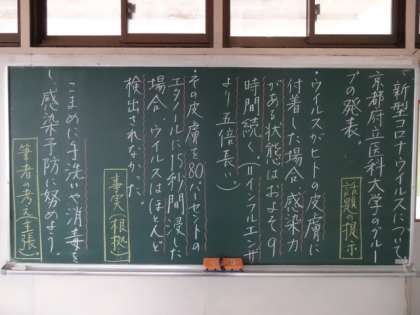 「新型コロナウイルスについて」
京都府立医科大学のグルー
プの発表。
話題の提示
・ウイルスがヒトの皮膚に
付着した場合、感染力
がある状態はおよそ9
時間続く。(=インフルエンザ
より五倍長い)
・その皮膚を80パーセントの
エタノールに15秒間浸した
場合、ウイルスはほとんど
検出されなかった。
事実(根拠)
こまめに手洗いや消毒を
し、感染予防に努めよう。
筆者の考え(主張)